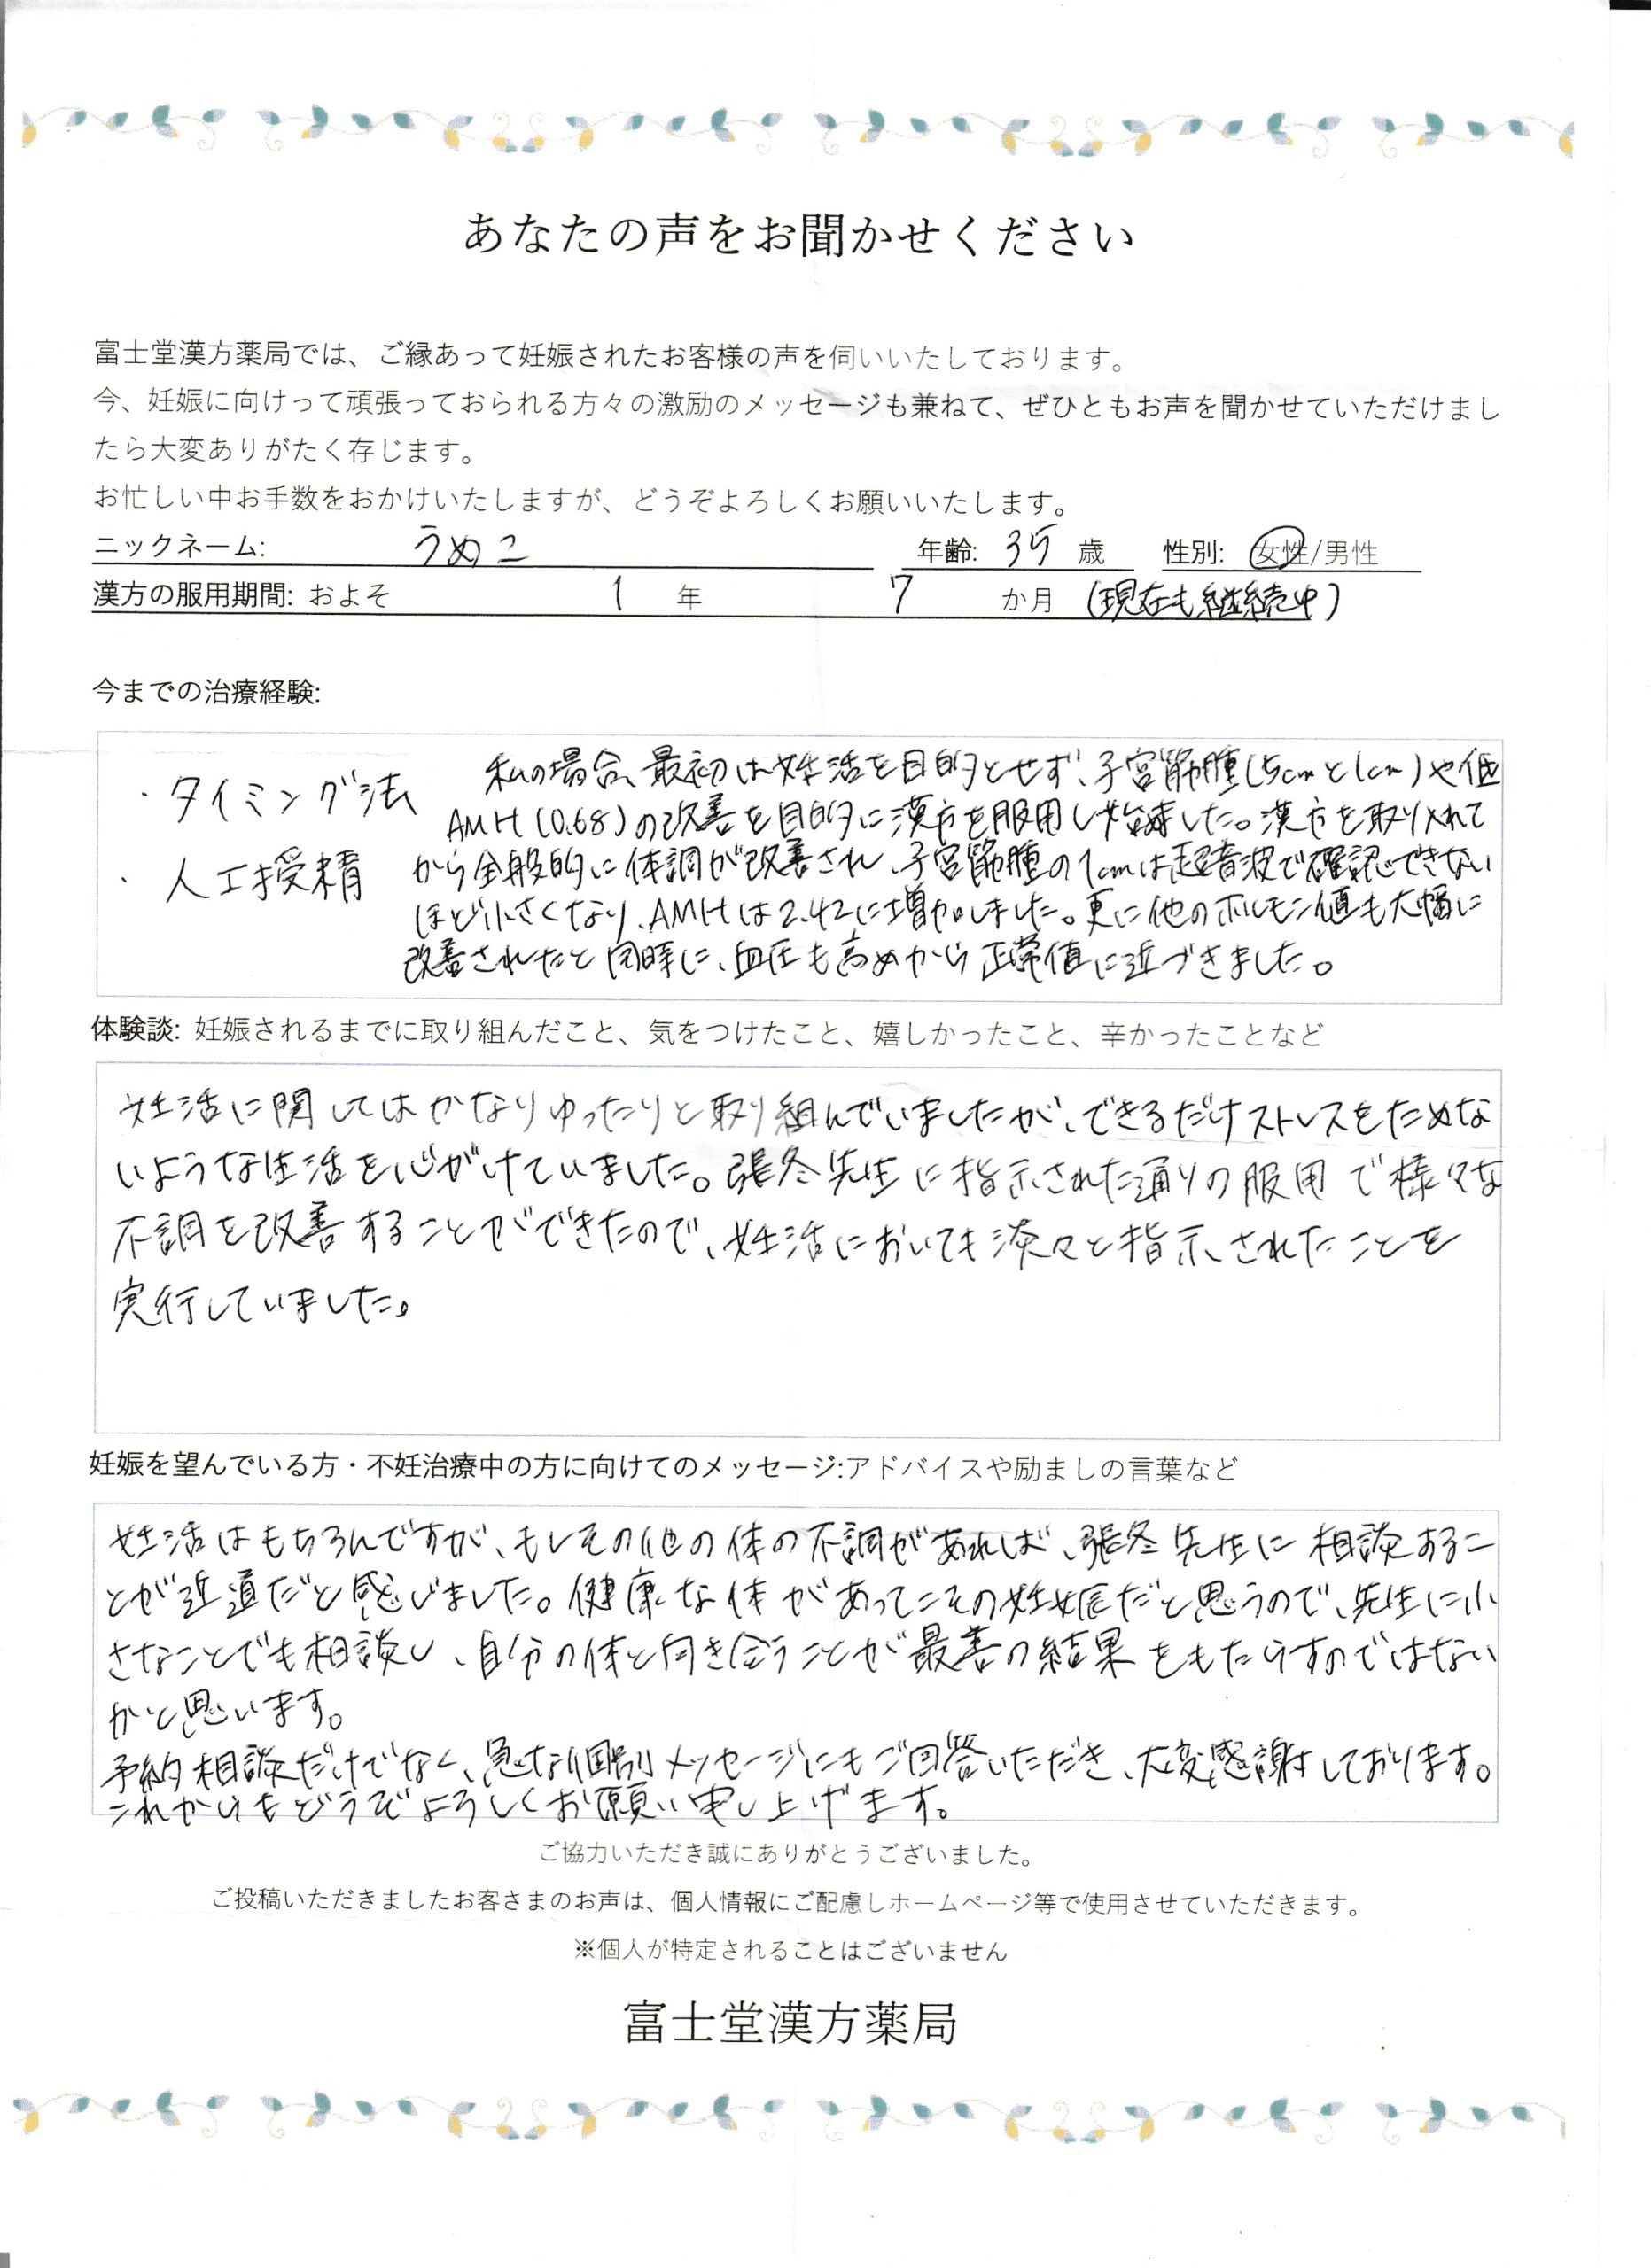 あなたの声をお聞かせください
富士堂漢方薬局では、ご縁あって妊娠されたお客様の声を伺いいたしております。
今、妊娠に向けって頑張っておられる方々の激励のメッセージも兼ねて、ぜひともお声を聞かせていただけまし
たら大変ありがたく存じます。
お忙しい中お手数をおかけいたしますが、どうぞよろしくお願いいたします。
ニックネーム: うめこ 年齢: 35 歳 性別: 女性/男性
漢方の服用期間: およそ 1 年 7 か月 (現在も継続中)
今までの治療経験:
・タイミング法
・人工授精
私の場合、最初は妊活を目的とせず、子宮筋腫(5cmと1cm)や低
AMH(0.68)の改善を目的に漢方を服用し始めました。漢方を取り入れて
から全般的に体調が改善され、子宮筋腫の1cmは超音波で確認できない
ほど小さくなり、AMHは2.42に増加しました。更に他のホルモン値も大幅に
改善されたと同時に、血圧も高めから正常値に近づきました。
体験談: 妊娠されるまでに取り組んだこと、気をつけたこと、嬉しかったこと、辛かったことなど
妊活に関してはかなりゆったりと取り組んでいましたが、できるだけストレスをためな
いような生活を心がけていました。張冬先生に指示された通りの服用で様々な
不調を改善することができたので、妊活においても淡々と指示されたことを
実行していました。
妊娠を望んでいる方・不妊治療中の方に向けてのメッセージ:アドバイスや励ましの言葉など
妊活はもちろんですが、もしその他の体の不調があれば、張冬先生に相談するこ
とが近道だと感じました。健康な体があってこその妊娠だと思うので、先生に小
さなことでも相談し、自分の体と向き合うことが最善の結果をもたらすのではない
かと思います。
予約相談だけでなく、急な個別メッセージにもご回答いただき、大変感謝しております。
これからもどうぞよろしくお願い申し上げます。
ご協力いただき誠にありがとうございました。
ご投稿いただきましたお客さまのお声は、個人情報にご配慮しホームページ等で使用させていただきます。
※個人が特定されることはございません
富士堂漢方薬局